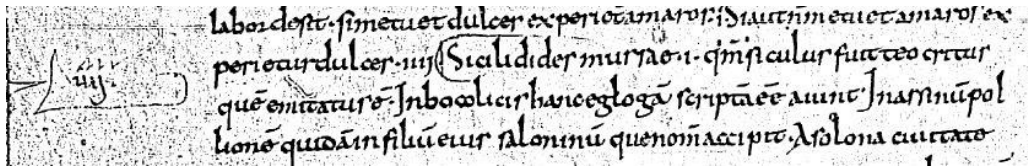 labor dest · si metuet dulces experiet amaros · i · Si aut n̄ metuet amaros ex
perietur dulces · iiij Sicilidides mursae · i · qm̄ siculus fuit teocritus
iiij · quē emitatur ē · In bocolicis hanc eglogā scriptā eē aiunt · In assinnū pol
lionē quidā in filiū eius saloninū que nom̄ accipit · A solona ciuitate